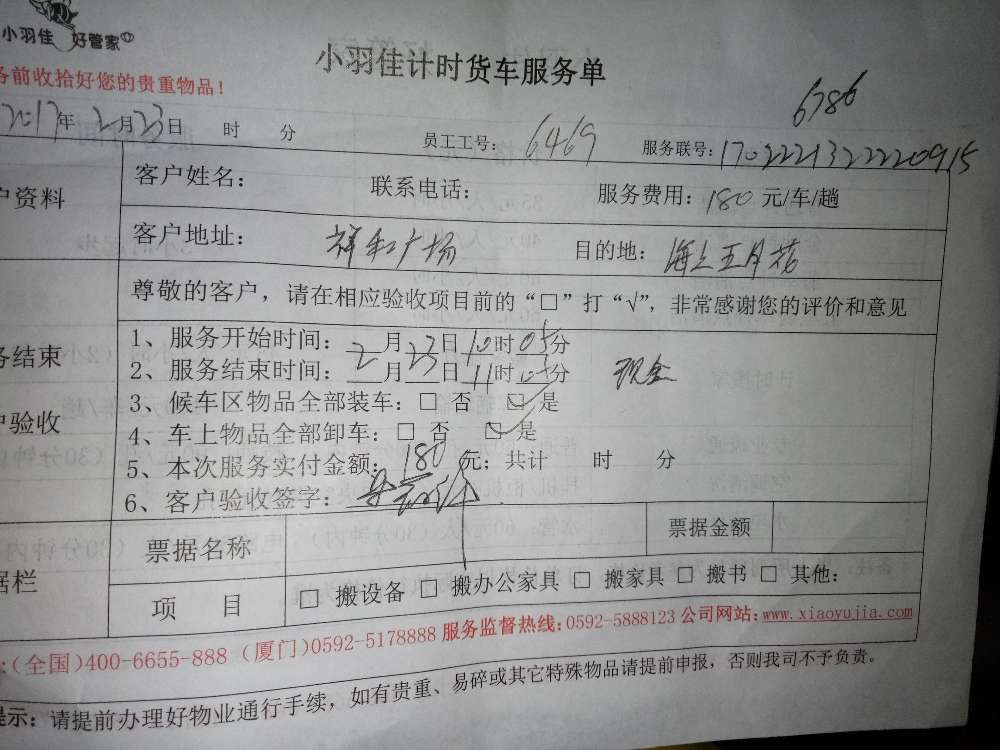 小羽佳 好管家
小羽佳计时货车服务单
务前收拾好您的贵重物品!
6786
2017年2月23日 时 分 员工工号: 6469 服务联号:1702221322220915
户资料 客户姓名: 联系电话: 服务费用:180元/车/趟
客户地址: 祥和广场 目的地: 海上五月花
尊敬的客户，请在相应验收项目前的“□”打“√”，非常感谢您的评价和意见
1、服务开始时间: 2月23日10时05分
务结束 2、服务结束时间: 2月23日11时05分 现金
3、候车区物品全部装车: □ 否 □ 是
户验收 4、车上物品全部卸车: □ 否 □ 是
5、本次服务实付金额: 180元; 共计 时 分
6、客户验收签字:
票据名称 票据金额
据栏 项 目 □ 搬设备 □ 搬办公家具 □ 搬家具 □ 搬书 □ 其他:
:(全国)400-6655-888 (厦门)0592-5178888 服务监督热线:0592-5888123 公司网站:www.xiaoyujia.com
提示: 请提前办理好物业通行手续，如有贵重、易碎或其它特殊物品请提前申报，否则我司不予负责。